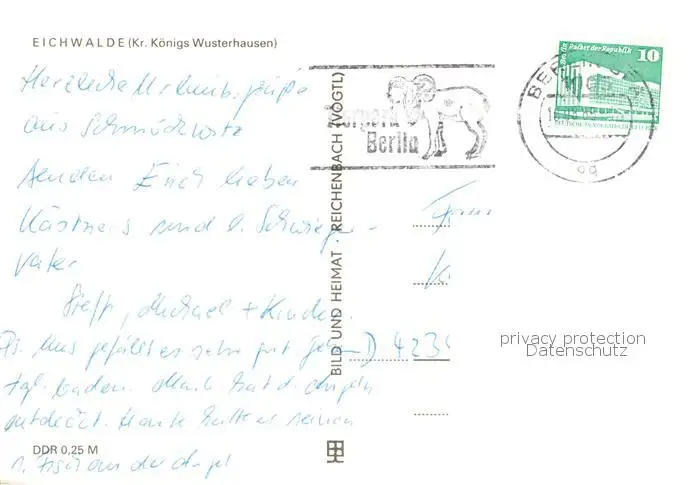 EICHWALDE (Kr. Königs Wusterhausen)
Herzliche Urlaubsgrüße
aus Schmöckwitz
senden Euch lieben
Kästners und l. Schwieger-
vater
Steffi, Michael + Kinder.
Ps. Uns gefällt es sehr gut gehen
tgl. baden. Maik hat d. angeln
entdeckt. Heute hatte er seinen
1. Fisch an der Angel
DDR 0,25 M
BILD UND HEIMAT · REICHENBACH (VOGTL)
Tierpark
Berlin
BERLIN
Palast der Republik
10
Fam
D 423
privacy protection
Datenschutz